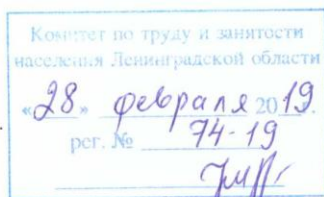 Комитет по труду и занятости
населения Ленинградской области
«28» февраля 2019.
рег. № 74-19